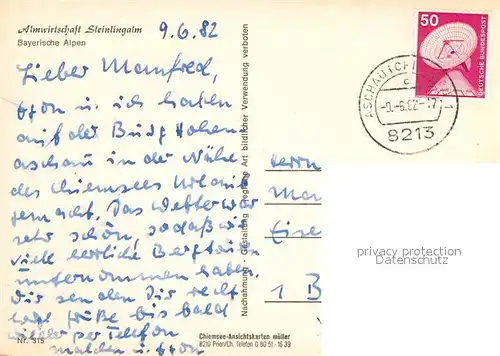 Almwirtschaft Steinlingalm
Bayerische Alpen
9.6.82
Lieber Manfred,
u. ich haben
auf der Burg Hohen
aschau in der Nähe
des Chiemsees Urlaub
gemacht. Das Wetter war
sehr schön, sodaß wir
viele herrliche Bergtouren
unternommen haben.
Wir senden Dir recht
Grüße bis bald
wieder per Telefon
Nr. 315
Nachahmung · Gestaltung jeglicher Art bildlicher Verwendung verboten
Chiemsee-Ansichtskarten müller
8210 Prien/Ch. Telefon 0 80 51 - 16 39
50
DEUTSCHE BUNDESPOST
ASCHAU i CHIEMGAU 1
-9.-6.82-17
8213
Herrn
Man
Eise
1 B
privacy protection
Datenschutz